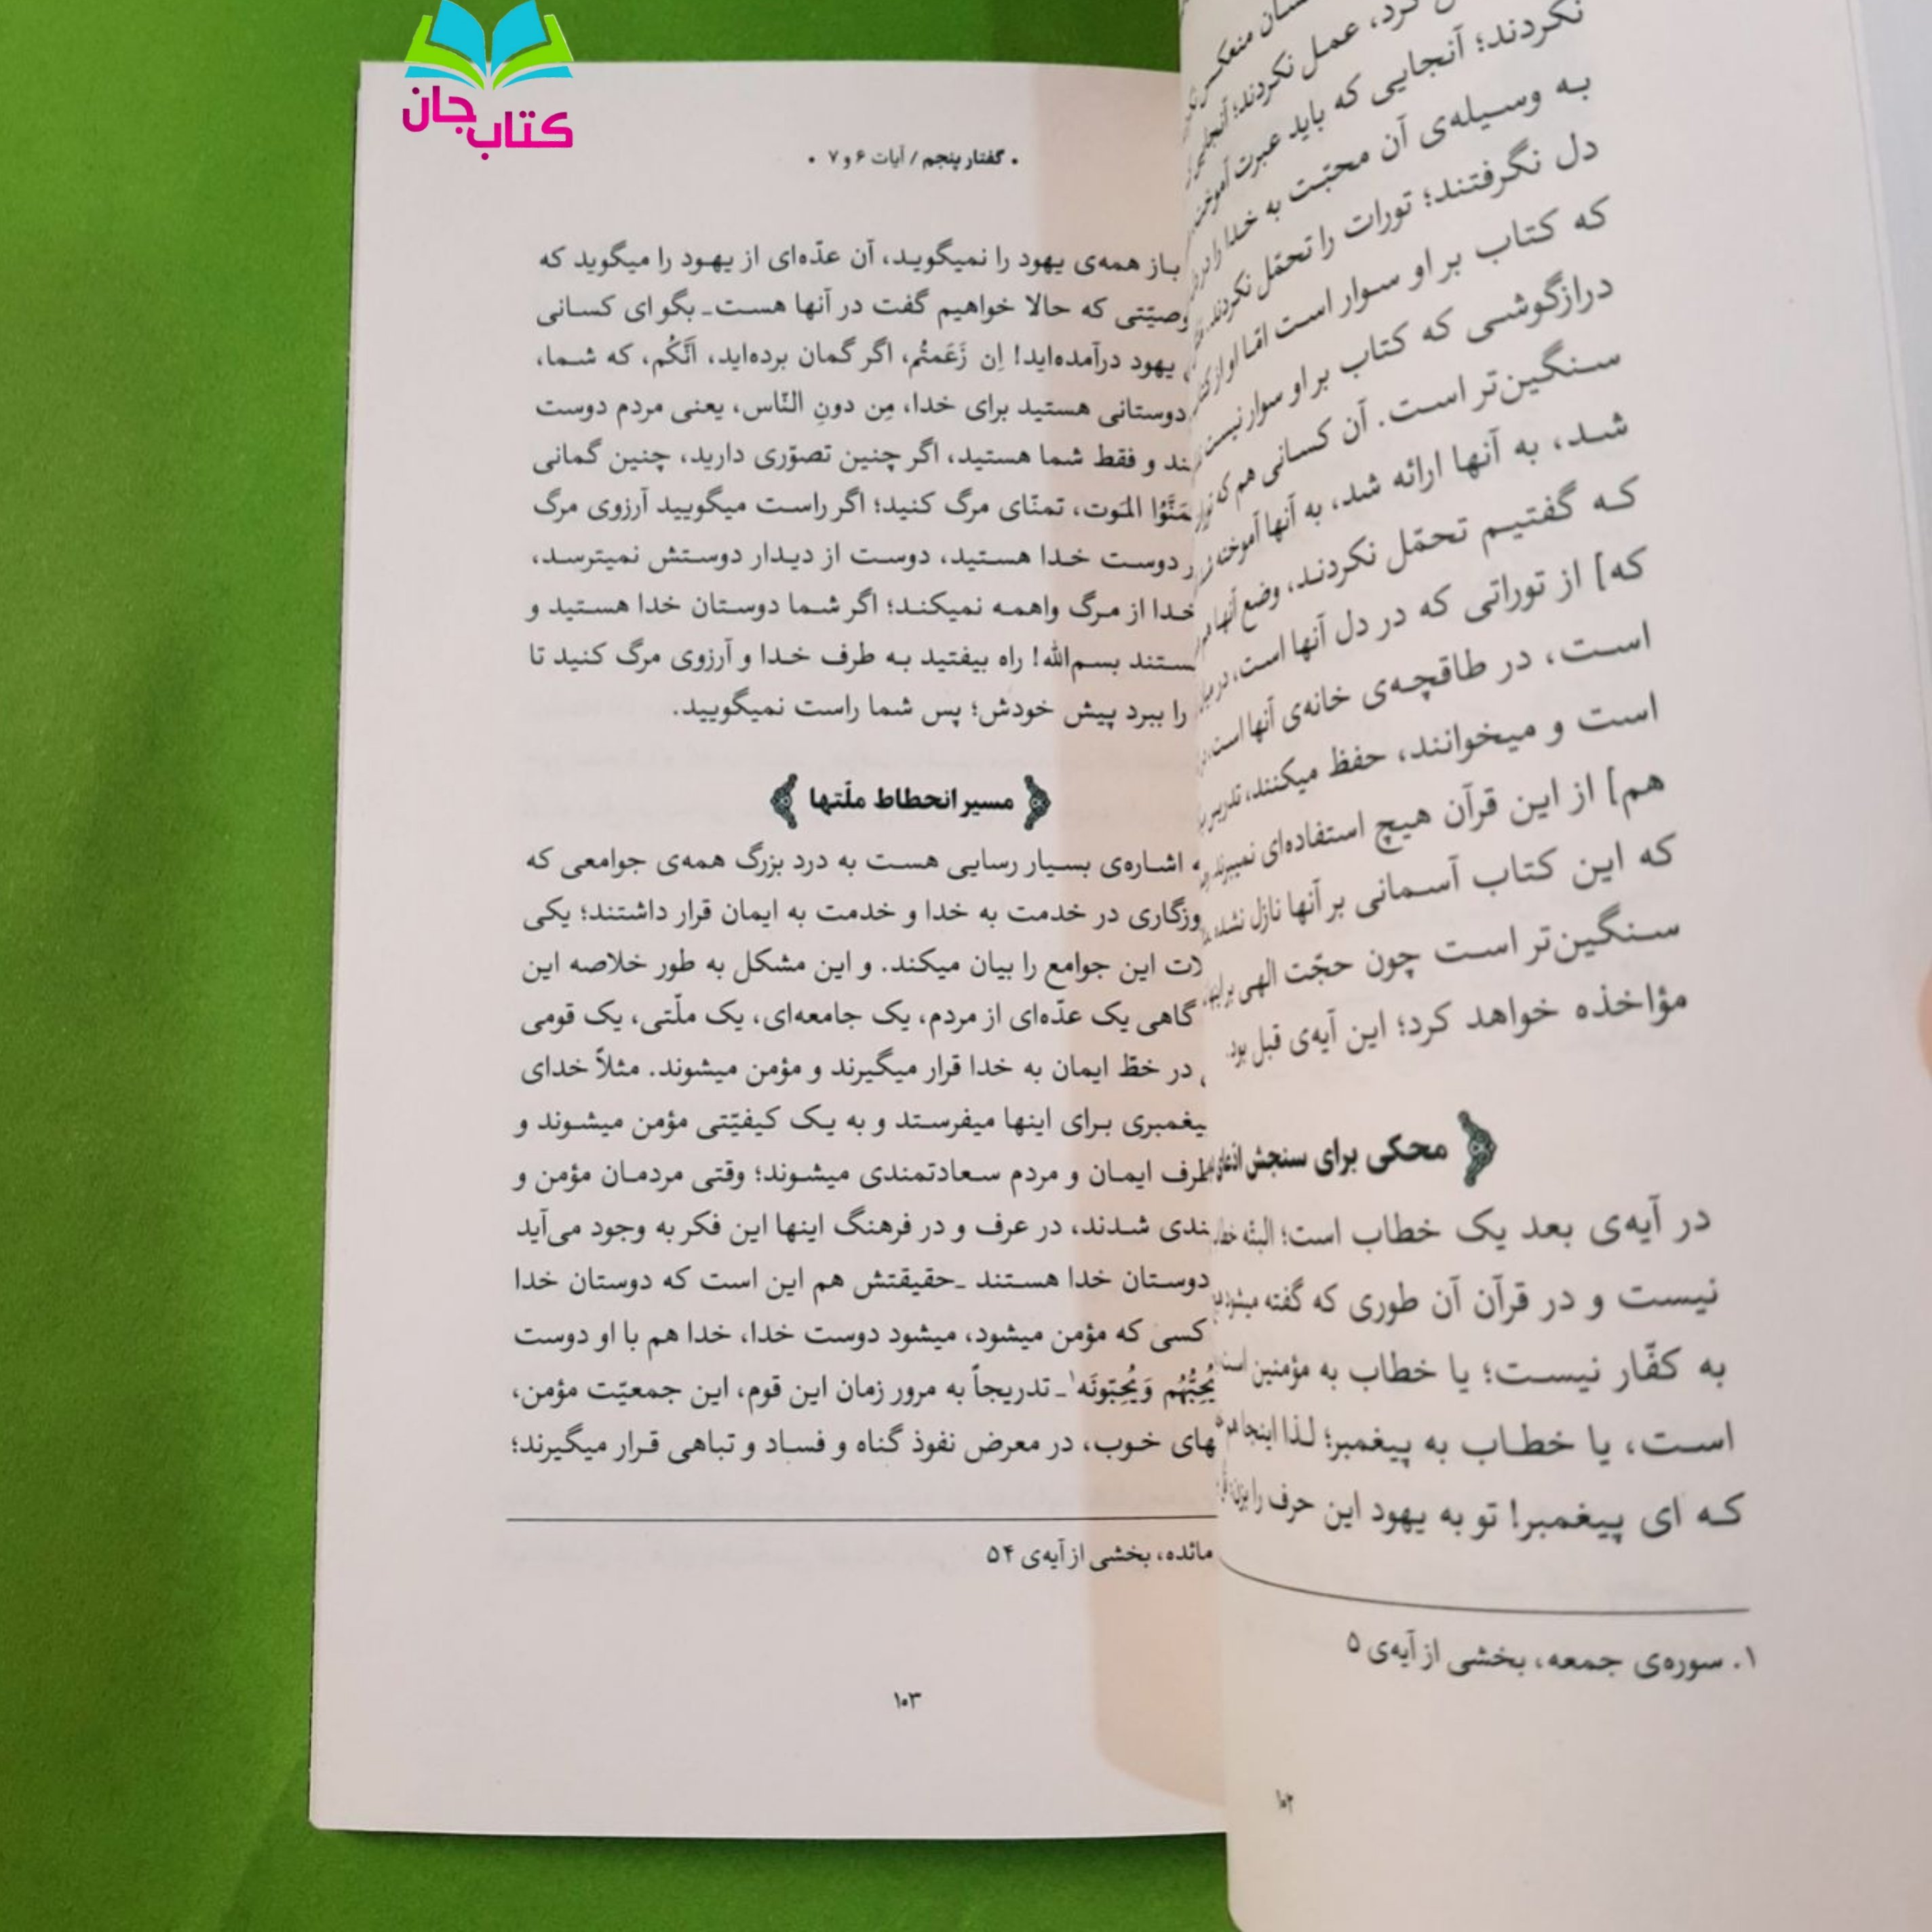 کتاب جان
نکردند؛ آنجایی که باید عبرت
به وسیله‌ی آن محبّت به خدا را
دل نگرفتند؛ تورات را تحمّل نکردند
که کتاب بر او سوار است امّا او از
درازگوشی که کتاب بر او سوار نیست
سنگین‌تر است. آن کسانی هم که
شد، به آنها ارائه شد، به آنها آموخته
که گفتیم تحمّل نکردند، وضع آنها
که] از توراتی که در دل آنها است،
است، در طاقچه‌ی خانه‌ی آنها است،
است و میخوانند، حفظ میکنند،
هم] از این قرآن هیچ استفاده‌ای نمیبرند
که این کتاب آسمانی بر آنها نازل نشده
سنگین‌تر است چون حجّت الهی بر
مؤاخذه خواهد کرد؛ این آیه‌ی قبل بود.
محکی برای سنجش ادّعای
در آیه‌ی بعد یک خطاب است؛ البتّه
نیست و در قرآن آن طوری که گفته میشود
به کفّار نیست؛ یا خطاب به مؤمنین
است، یا خطاب به پیغمبر؛ لذا اینجا
که ای پیغمبر! تو به یهود این حرف را
۱. سوره‌ی جمعه، بخشی از آیه‌ی ۵
۱۰۲
• گفتار پنجم / آیات ۶ و ۷ •
باز همه‌ی یهود را نمیگوید، آن عدّه‌ای از یهود را میگوید که
گفت در آنها هست ـ بگو ای کسانی
یهود درآمده‌اید! اِن زَعَمتُم، اگر گمان برده‌اید، اَنَّکُم، که شما،
دوستانی هستید برای خدا، مِن دونِ النّاس، یعنی مردم دوست
و فقط شما هستید، اگر چنین تصوّری دارید، چنین گمانی
المَوت، تمنّای مرگ کنید؛ اگر راست میگویید آرزوی مرگ
دوست خدا هستید، دوست از دیدار دوستش نمیترسد،
خدا از مرگ واهمه نمیکند؛ اگر شما دوستان خدا هستید و
بسم‌الله! راه بیفتید به طرف خدا و آرزوی مرگ کنید تا
را ببرد پیش خودش؛ پس شما راست نمیگویید.
مسیر انحطاط ملّتها
اشاره‌ی بسیار رسایی هست به درد بزرگ همه‌ی جوامعی که
در خدمت به خدا و خدمت به ایمان قرار داشتند؛ یکی
این جوامع را بیان میکند. و این مشکل به طور خلاصه این
گاهی یک عدّه‌ای از مردم، یک جامعه‌ای، یک ملّتی، یک قومی
در خطّ ایمان به خدا قرار میگیرند و مؤمن میشوند. مثلاً خدای
برای اینها میفرستد و به یک کیفیّتی مؤمن میشوند و
طرف ایمان و مردم سعادتمندی میشوند؛ وقتی مردمان مؤمن و
شدند، در عرف و در فرهنگ اینها این فکر به وجود می‌آید
دوستان خدا هستند ـ حقیقتش هم این است که دوستان خدا
کسی که مؤمن میشود، میشود دوست خدا، خدا هم با او دوست
یُحِبُّهُم وَیُحِبّونَه۱ ـ تدریجاً به مرور زمان این قوم، این جمعیّت مؤمن،
خوب، در معرض نفوذ گناه و فساد و تباهی قرار میگیرند؛
مائده، بخشی از آیه‌ی ۵۴
۱۰۳